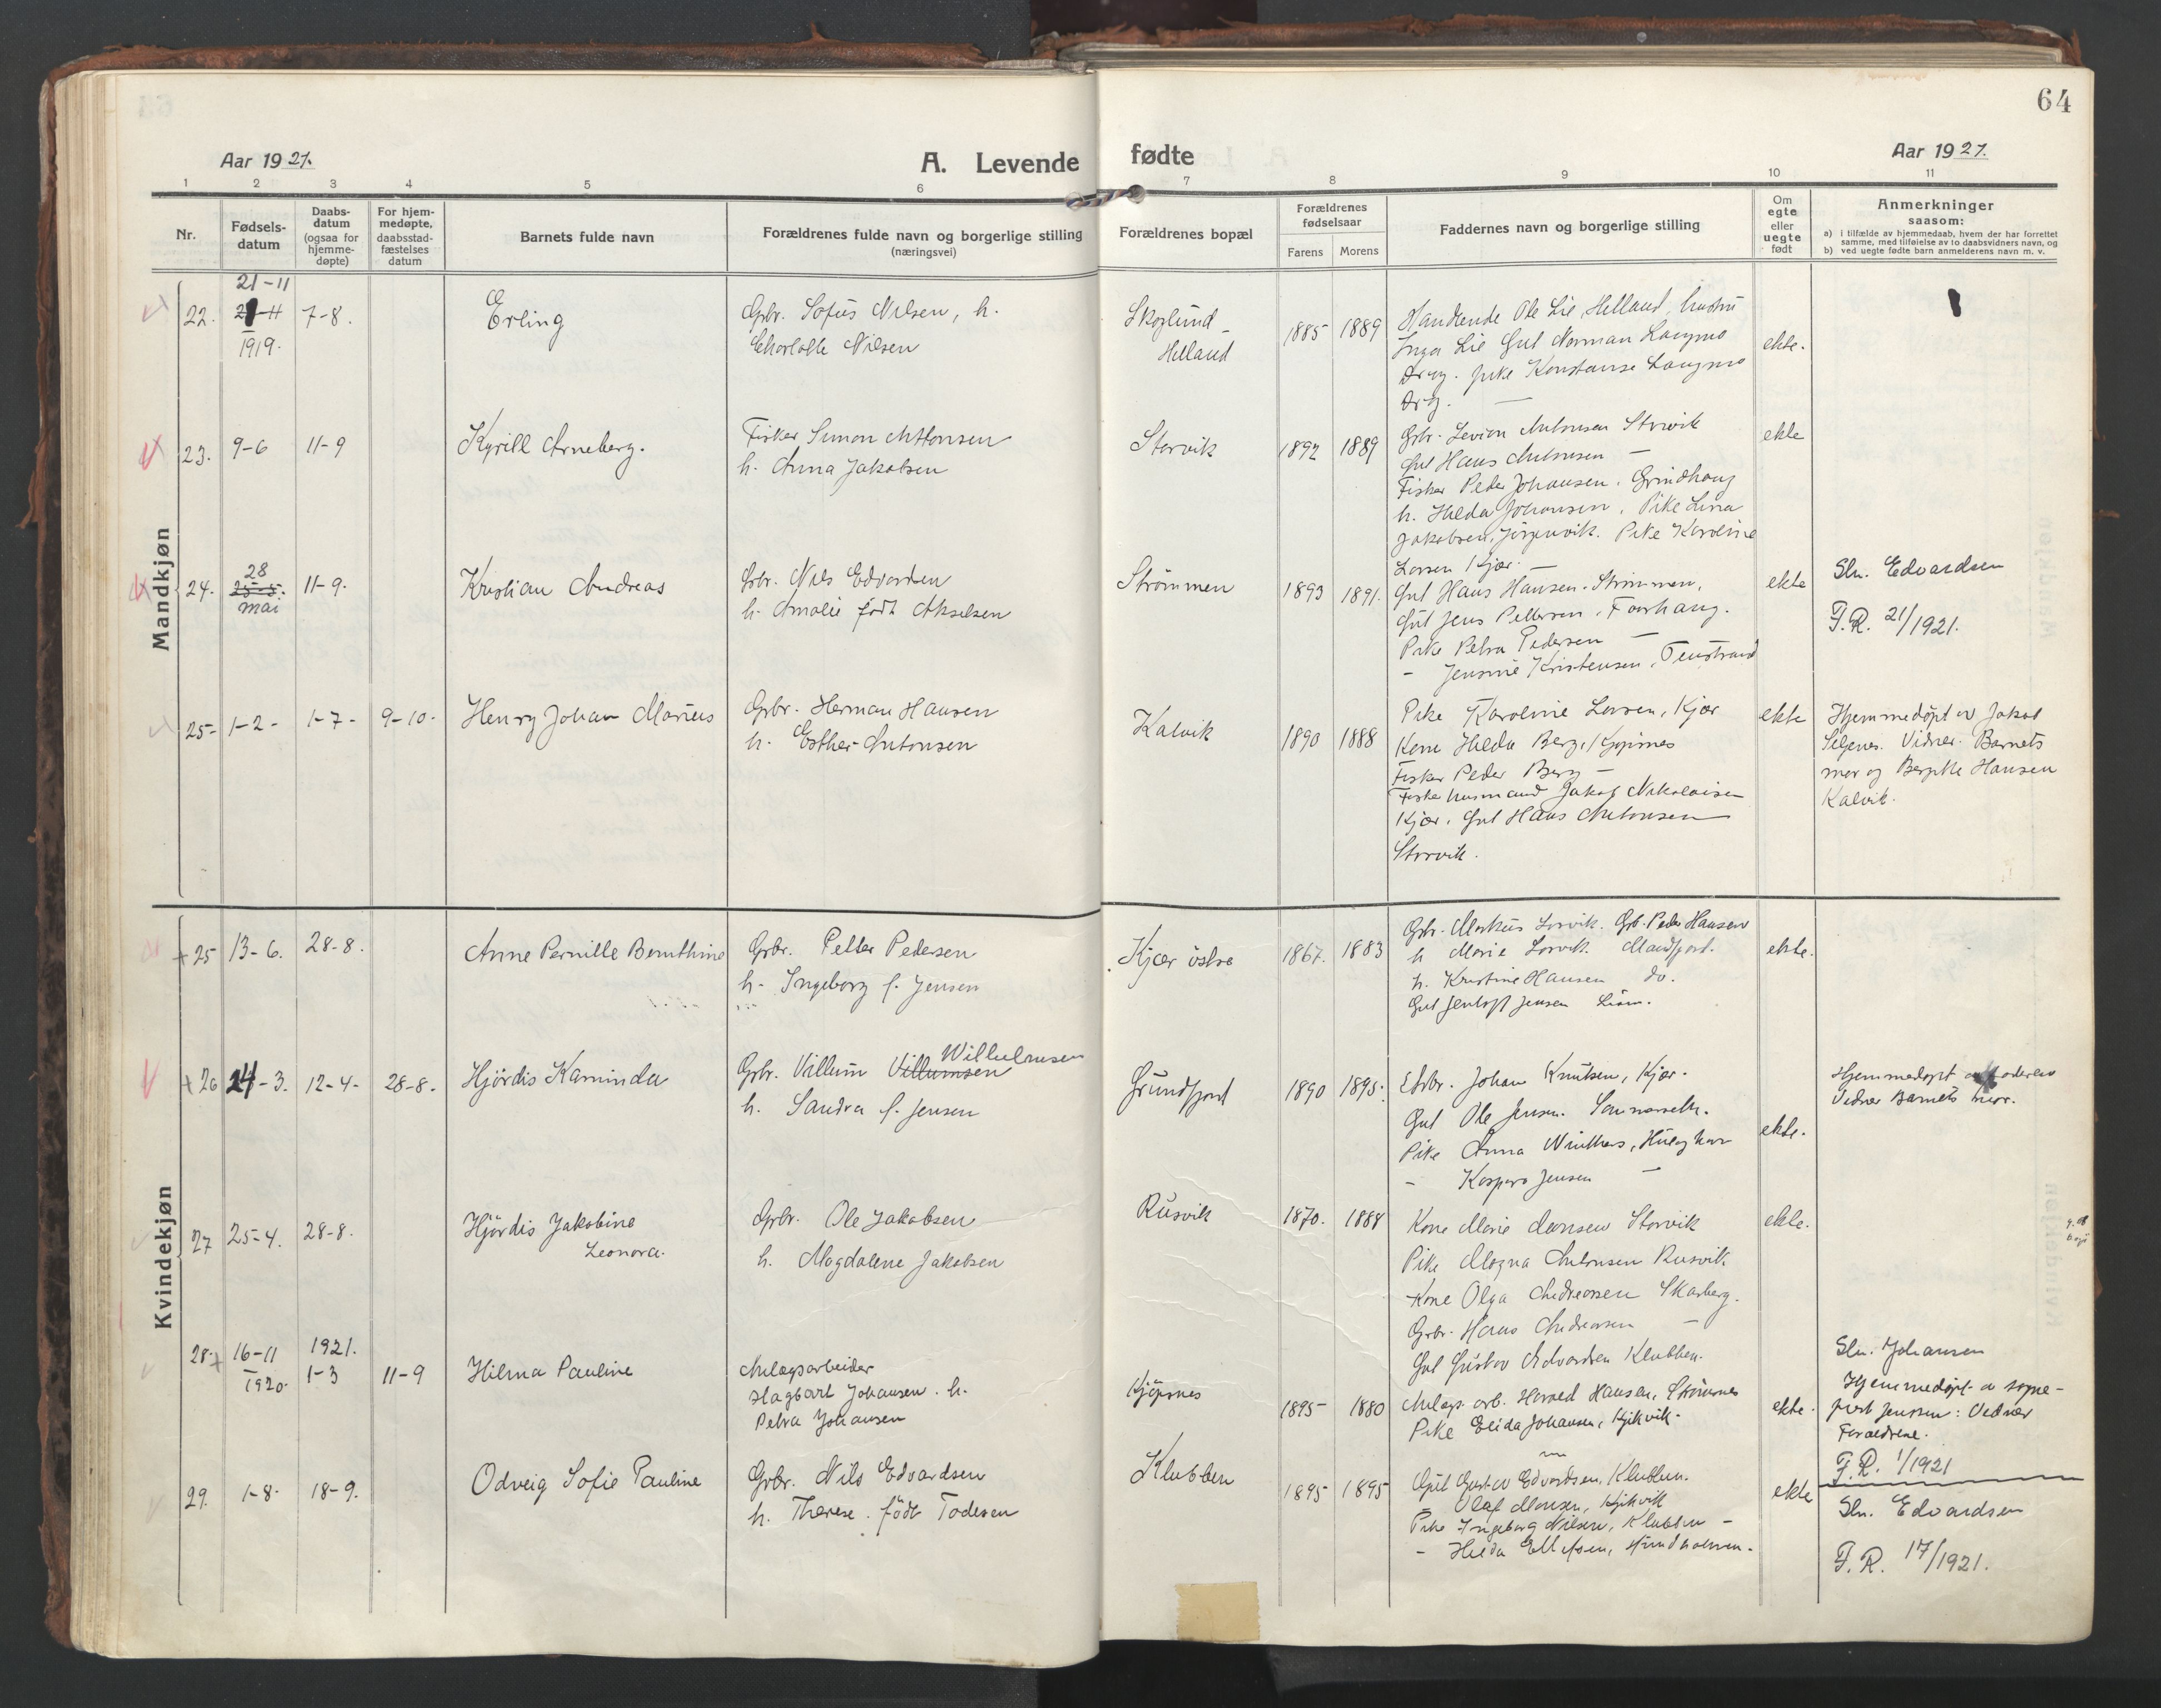 64
Aar 1921.
A. Levende fødte
Aar 1921.
1 2 3 4 5 6 7 8 9 10 11
Nr.
Fødsels-
datum
Daabs-
datum
(ogsaa for
hjemme-
døpte)
For hjem-
medøpte,
daabsstad-
fæstelses
datum
Barnets fulde navn
Forældrenes fulde navn og borgerlige stilling
(næringsvei)
Forældrenes bopæl
Forældrenes
fødselsaar
Farens
Morens
Faddernes navn og borgerlige stilling
Om
egte
eller
uegte
født
Anmerkninger
saasom:
a) i tilfælde av hjemmedaab, hvem der har forrettet
samme, med tilføielse av to daabsvidners navn, og
b) ved uegte fødte barn anmelderens navn m. v.
Mandkjøn
22.
21-11
1919.
7-8.
Erling
Grbr. Sofus Nilsen, h.
Charlotte Nilsen
Skoglund -
Helland
1885 1889
Handlende Ole Lie, Helland, hustru
Inga Lie Gut Norman Langmo
Drag. Pike Konstanse Langmo
Drg.
ekte.
23. 9-6 11-9
Kyrill Arneberg.
Fisker Simon Antonsen
h. Anna Jakobsen
Storvik
1892 1889
Grbr. Levion Antonsen Storvik
Gut Hans Antonsen —
Fisker Peder Johansen. Grindhaug
h. Hilda Johansen, Pike Lina
Jakobsen, Jörgenvik. Pike Karoline
Larsen Kjær.
ekte
24.
28
25-5.
mai
11-9.
Kristian Andreas
Grbr. Nils Edvardsen
h. Amalie født Akselsen
Strömmen
1893 1891.
Gut Hans Hansen. Strömmen,
Gut Jens Pettersen, Forhaug.
Pike Petra Pedersen —
- Jensine Kristensen, Tenstrand
ekte
Sln. Edvardsen
F.R. 21/1921.
25- 1-2- 1-7- 9-10-
Henry Johan Marius
Grbr. Herman Hansen
h. Esther Antonsen
Kalvik
1890 1888
Pike Karoline Larsen, Kjær
Kone Hilda Berg, Kjöpsnes
Fisker Peder Berg —
Fisker husmand Jakob Nikolaisen
Kjær. Gut Hans Antonsen
Storvik.
ekte
Hjemmedöpt av Jakob
Vidner. Barnets
mor og Hansen
Kalvik.
Kvindekjøn
+25 13-6. 28-8.
Anne Pernille Bernthine
Grbr. Petter Pedersen
h. Ingeborg f. Jensen
Kjær östre
1867. 1883
Grbr. Markus Lorvik. Grb. Peder Hansen
h Marie Lorvik. Mandfjord.
h. Kristine Hansen do.
Gut Jentoft Jensen
ekte.
+26 24-3. 12-4- 28-8.
Hjördis Kaminda
Grbr. Villum Villumsen Wilhelmsen
h. Sandra f. Jensen
Grundfjord
1890 1895.
Johan Knutsen, Kjær.
Gut Ole Jensen.
Pike Anna Winthers,
- Kaspara Jensen —
ekte.
Hjemmedöpt
Vidner Barnets mor.
27 25-4. 28-8.
Hjördis Jakobine
Leonora.
Grbr. Ole Jakobsen
h. Magdalene Jakobsen
Rusvik
1870. 1884
Kone Marie Storvik
Pike Magna Antonsen Rusvik
Kone Olga Andreassen Skarberg.
Grbr. Hans Andreassen —
Gut Gustav Edvardsen Klubben.
ekte.
28.+
16-11
1920.
1921.
1-3
11-9
Hilma Pauline
Anlægsarbeider
Hagbart Johansen. h.
Petra Johansen
Kjöpsnes
1895- 1880
Anlægs. arb. Harald Hansen, Strömnes
Pike Elida Johansen, Kjikvik.
ekte.
Sln. Johansen
Hjemmedöpt a sogne-
prest Jenssen: Vidner
Forældrene.
F.R. 1/1921
29. 1-8- 18-9.
Odveig Sofie Pauline
Grbr. Nils Edvardsen
h. Therese. födt Todesen
Klubben
1895 1895
Gut Gustav Edvardsen, Klubben.
- Olaf Monsen, Kjikvik
Pike Ingeborg Nilsen, Klubben -
- Hilda Ellefsen, Hundholmen.
ekte
Sln. Edvardsen
F.R. 17/1921.